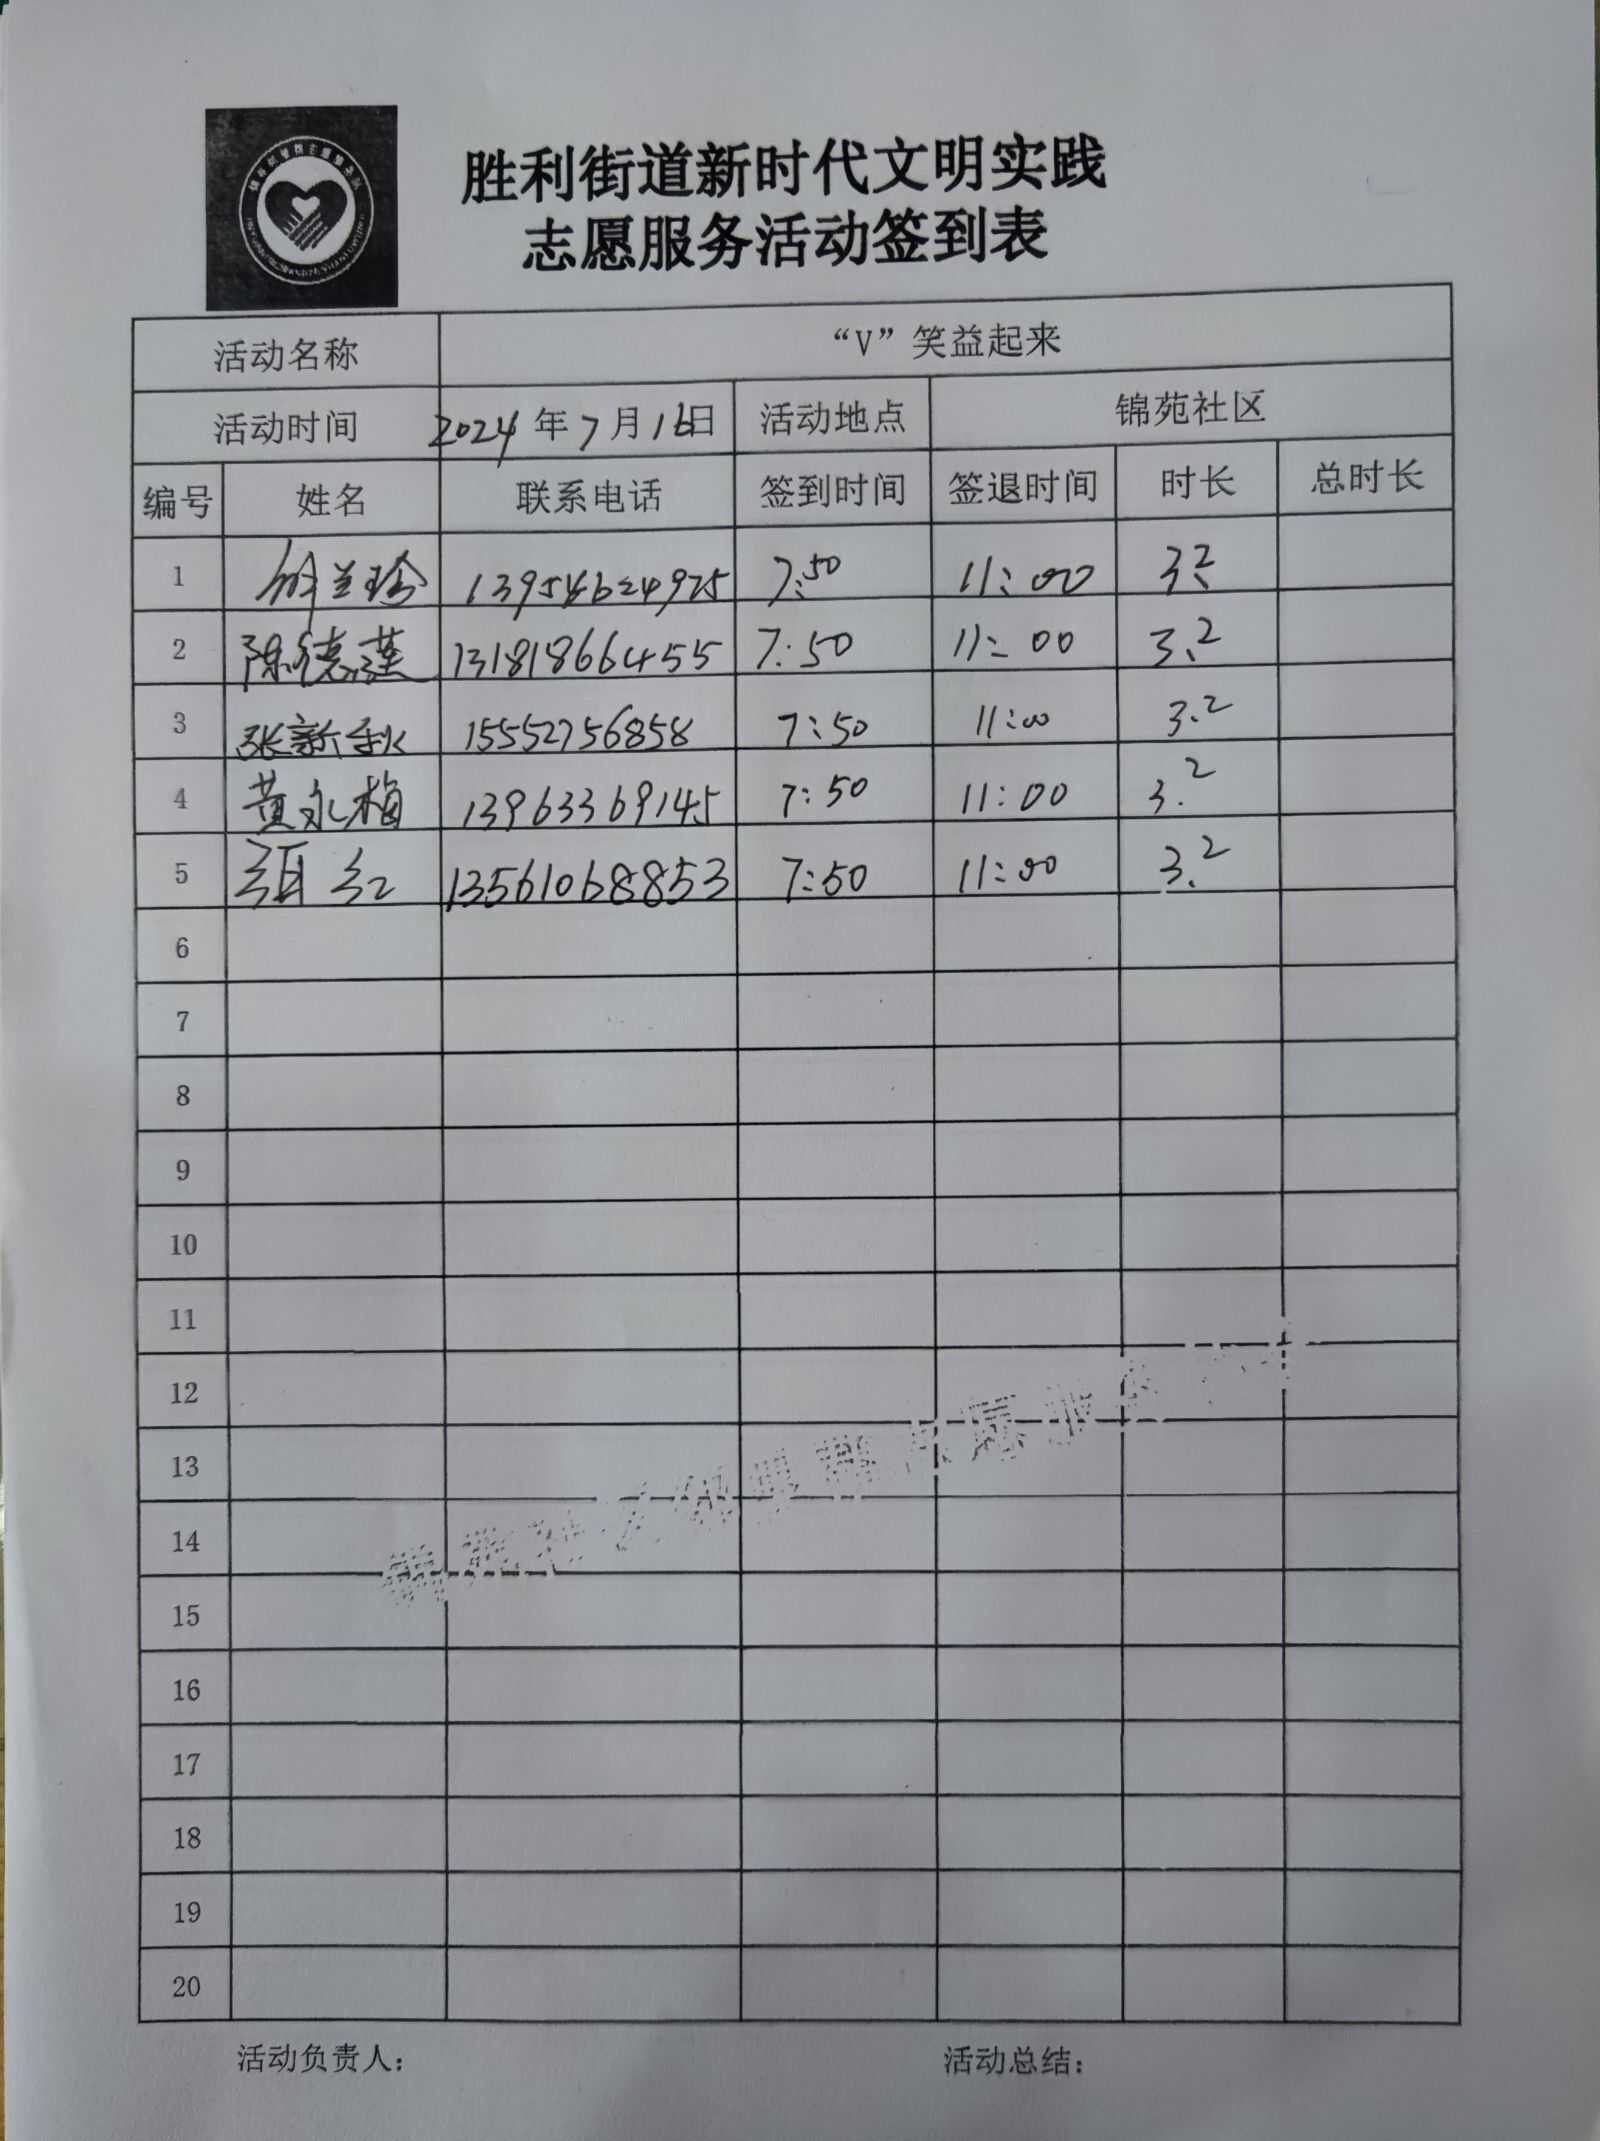 胜利街道新时代文明实践
志愿服务活动签到表
活动名称 “V”笑益起来
活动时间 2024年7月16日 活动地点 锦苑社区
编号 姓名 联系电话 签到时间 签退时间 时长 总时长
1 兰珍 13954624925 7:50 11:00 3.2
2 陈德谨 13181866455 7:50 11:00 3.2
3 张新秋 15552756858 7:50 11:00 3.2
4 黄永梅 13963369145 7:50 11:00 3.2
5 红 13561068853 7:50 11:00 3.2
6
7
8
9
10
11
12
13
14
15
16
17
18
19
20
活动负责人： 活动总结：